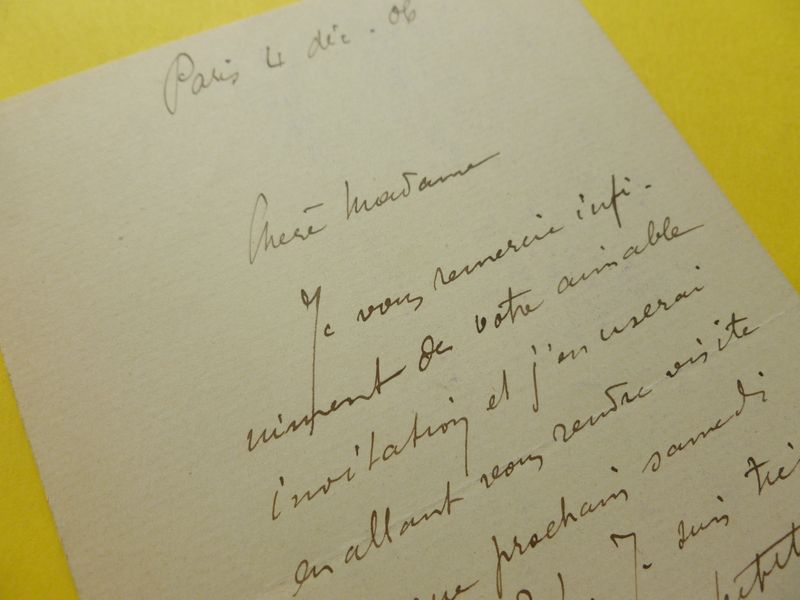 Paris 4 déc. 06
Chère Madame
Je vous remercie infi-
niment de votre aimable
invitation et j'en userai
en allant vous rendre visite
prochain samedi
Je suis